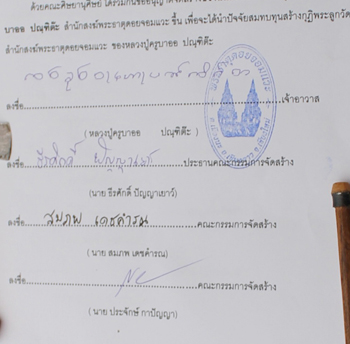 ด้วยคณะศิษยานุศิษย์ ได้ร่วมกันขออนุญาต
บาออ ปณฺฑิต๊ะ สำนักสงฆ์พระธาตุดอยจอมแวะ ขึ้น เพื่อจะได้นำปัจจัยสมทบทุนสร้างกุฏิพระลูกวัด
สำนักสงฆ์พระธาตุดอยจอมแวะ ของหลวงปู่ครูบาออ ปณฺฑิต๊ะ
ลงชื่อ เจ้าอาวาส
( หลวงปู่ครูบาออ ปณฺฑิต๊ะ )
ลงชื่อ ธีรศักดิ์ ปัญญาเยาว์ ประธานคณะกรรมการจัดสร้าง
(นาย ธีรศักดิ์ ปัญญาเยาว์)
ลงชื่อ สมภพ เดชคำรณ คณะกรรมการจัดสร้าง
( นาย สมภพ เดชคำรณ )
ลงชื่อ คณะกรรมการจัดสร้าง
( นาย ประจักษ์ กาปัญญา )